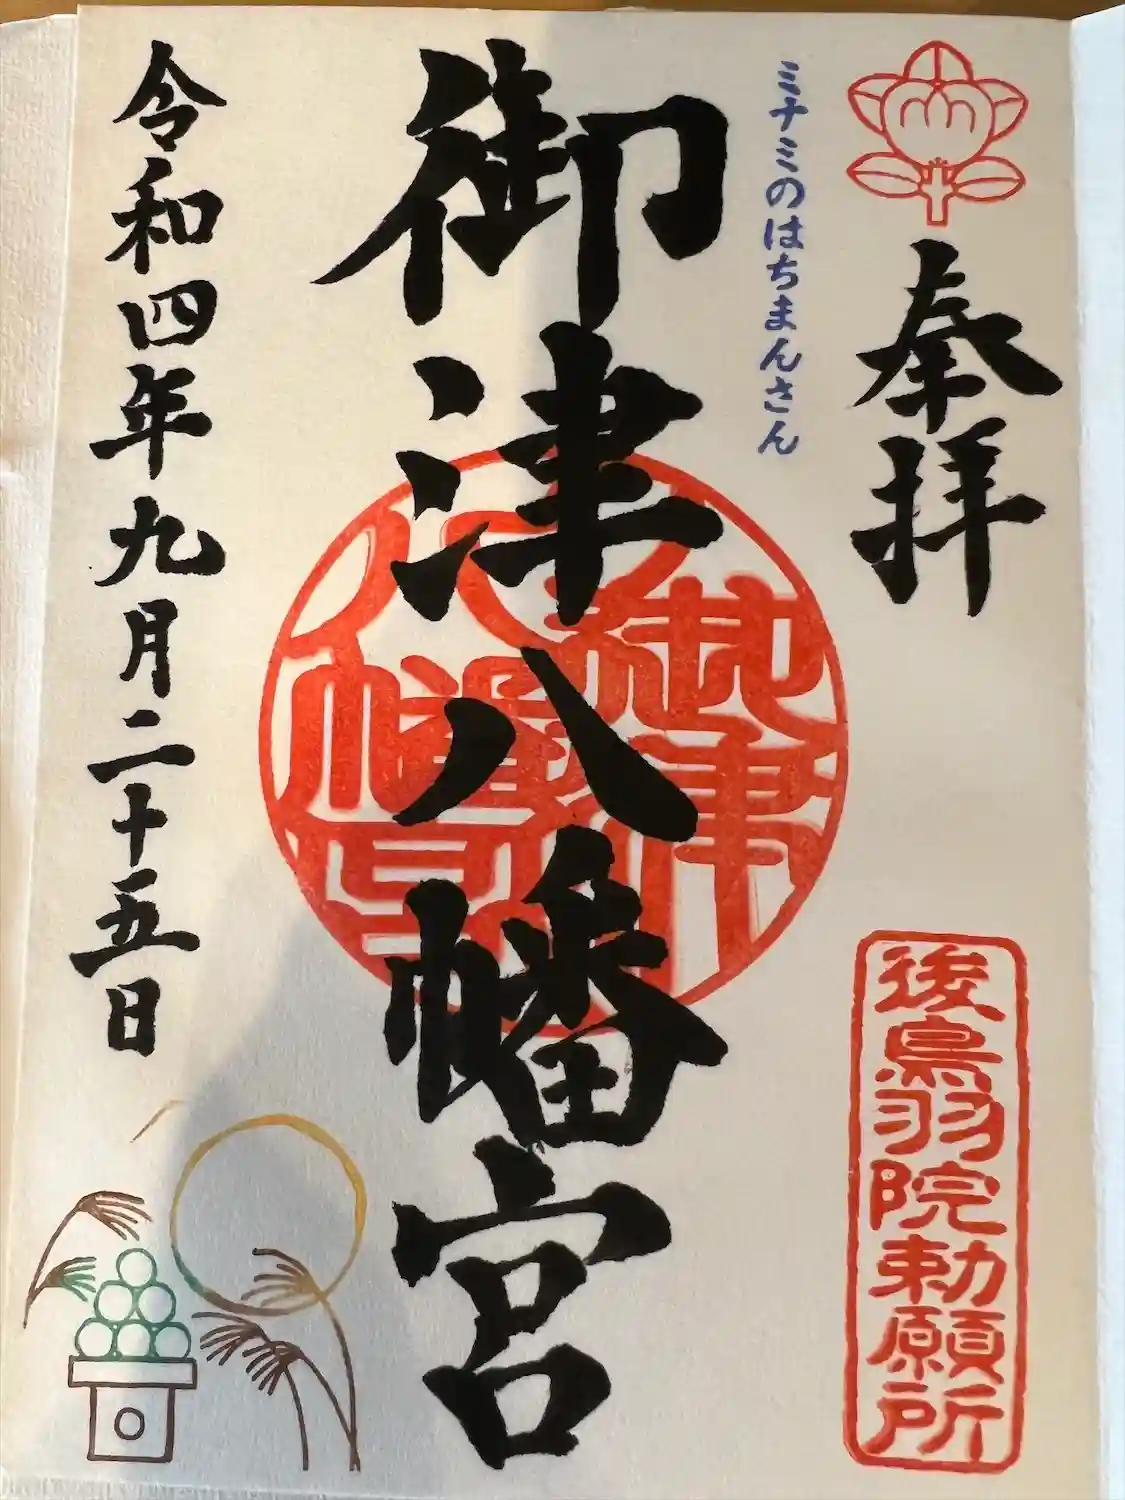 奉拝
後鳥羽院勅願所
ミナミのはちまんさん
御津八幡宮
御津八幡宮
令和四年九月二十五日